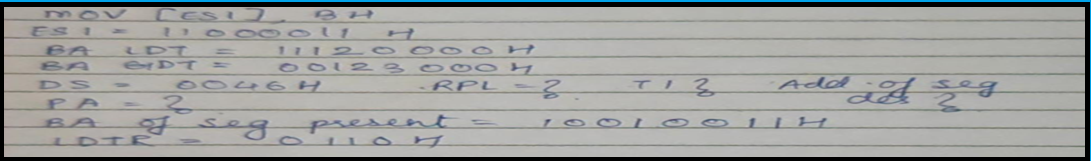 MOV [ESI], BH
ESI = 11000011 H
BA LDT = 11120000H
BA GDT = 00123000H
DS = 0046H RPL = ? TI ? Add. of seg des ?
PA = ?
BA of seg present = 10010011H
LDTR = 0110H